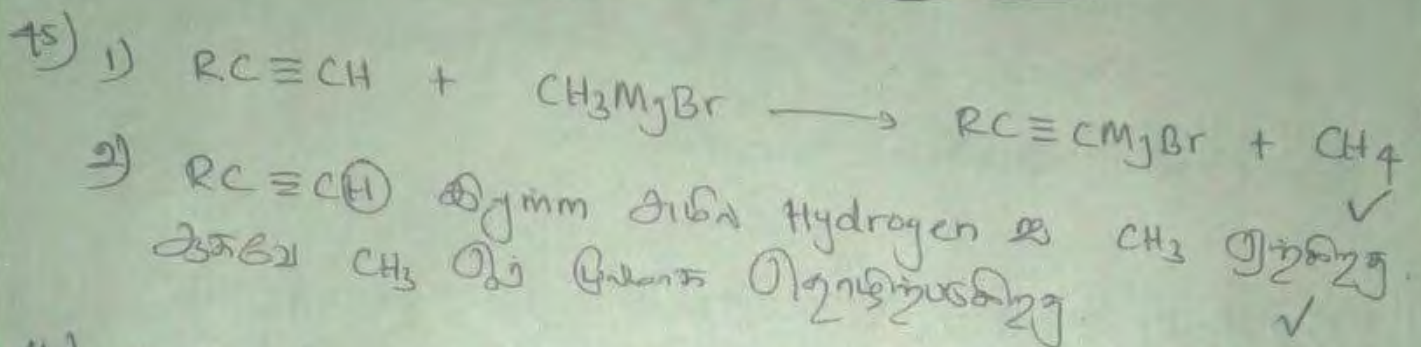 45) 1) RC ≡ CH + CH₃MgBr ⟶ RC ≡ CMgBr + CH₄
2) RC ≡ CH அமில Hydrogen ஐ CH₃ ஏற்கிறது.
ஆகவே CH₃ ஓர் மூலமாக தொழிற்படுகிறது.